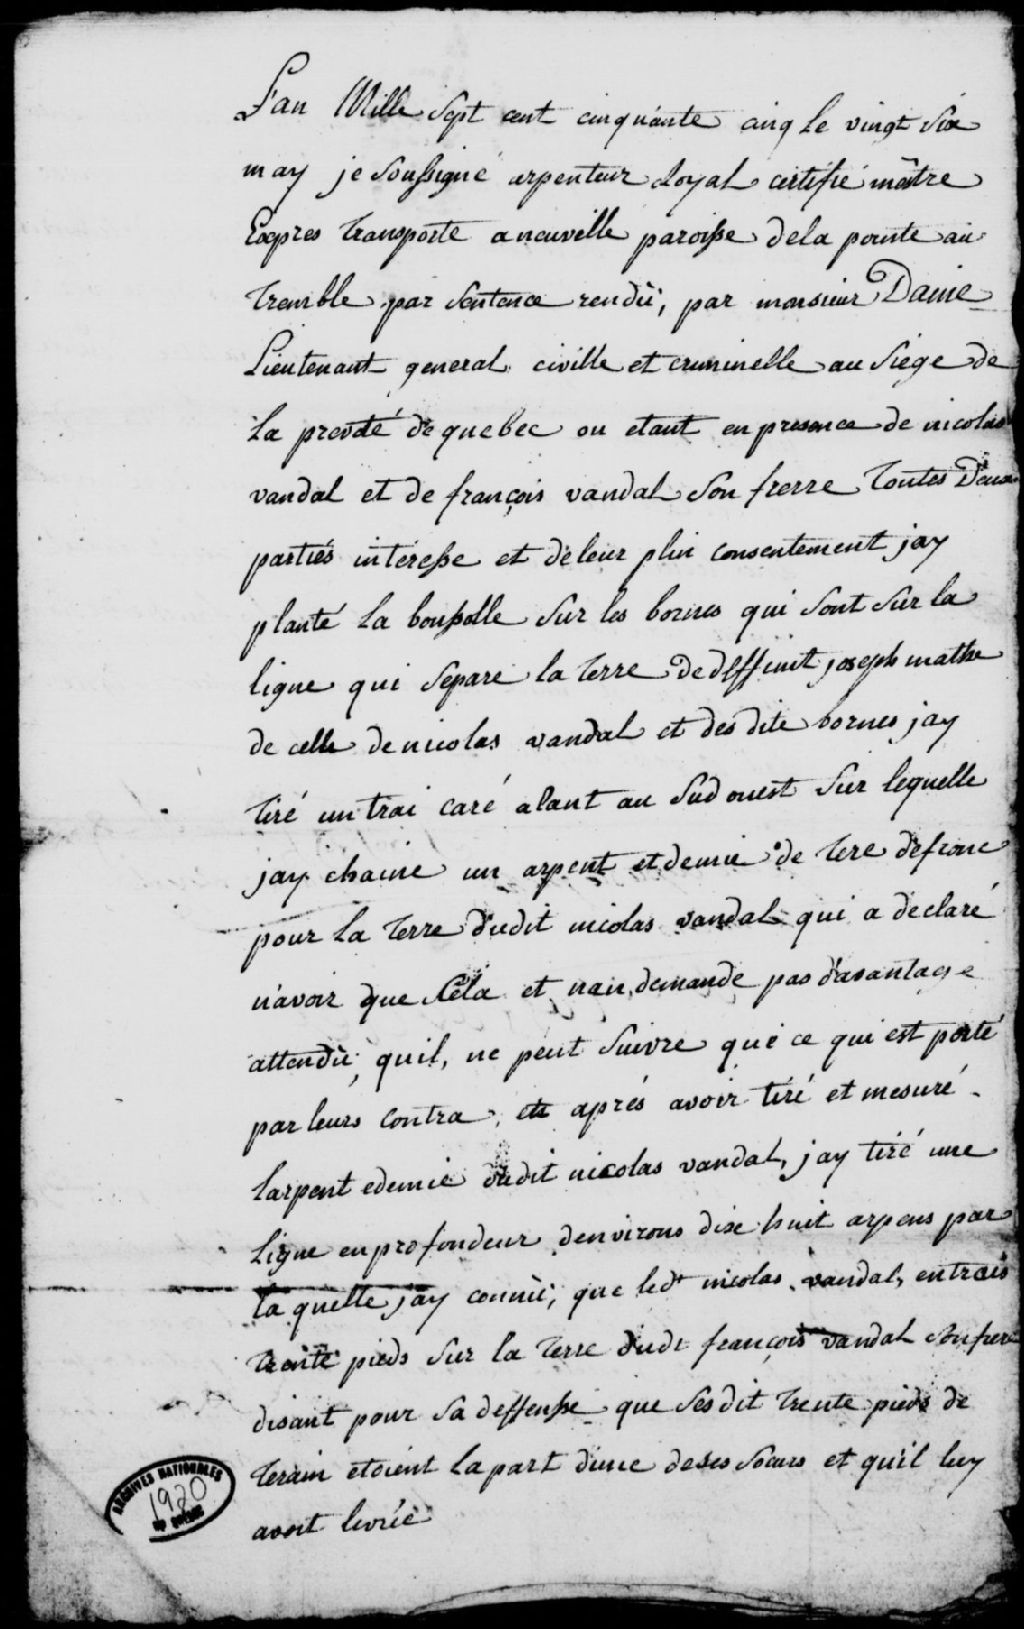 L'an Mille Sept cent cinquánte cinq Le vingt Six
may je Soussigné arpenteur Royal certifié mêtre
Expres transporte a neuville paroisse dela pointe au
tremble par Sentence rendüe, par monsieur Daine
Lieutenant general civille et criminelle au Siege de
La prevoté de quebec ou etant en presence de nicolas
vandal et de françois vandal Son frerre toutes Deux
partiés interesse et de leur plin consentement jay
planté La boussolle Sur les bornes qui Sont Sur la
ligne qui Separe la terre de deffunt joseph mathe
de celle de nicolas vandal et des dite bornes jay
tiré un trai caré alant au Sud ouest Sur lequelle
jay chainé un arpent et demie de tere de fronc
pour La terre dudit nicolas vandal qui a declaré
n'avoir que Cela et nan demande pas davantage
attendüe, quil, ne peut Suivre que ce qui est porté
par leurs contra, et aprés avoir tiré et mesuré
larpent edemie dudit nicolas vandal, jay tiré une
Ligne en profondeur denvirons dix huit arpens par
la quelle jay connüe, que led^t nicolas vandal, entrais
trente pieds Sur la terre dud^t françois vandal Son frere
disant pour Sa deffense que Ses dit trente pieds de
terain etoient La part dune de ses Soeurs et qu'il luy
avoit livrée
ARCHIVES NATIONALES
1920
DU QUEBEC